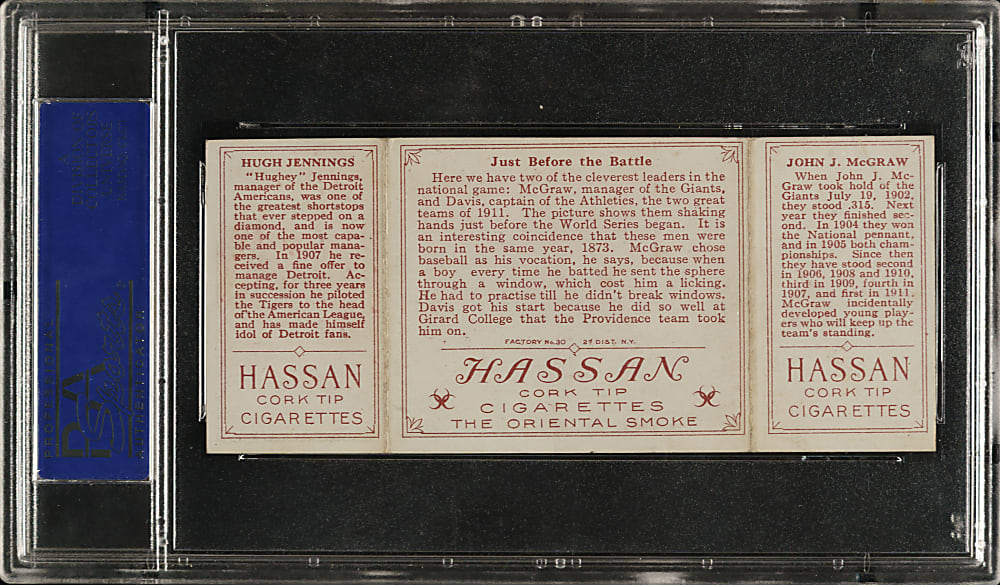 HUGH JENNINGS
"Hughey" Jennings,
manager of the Detroit
Americans, was one of
the greatest shortstops
that ever stepped on a
diamond, and is now
one of the most capa-
ble and popular mana-
gers. In 1907 he re-
ceived a fine offer to
manage Detroit. Ac-
cepting, for three years
in succession he piloted
the Tigers to the head
of the American League,
and has made himself
idol of Detroit fans.
HASSAN
CORK TIP
CIGARETTES
Just Before the Battle
Here we have two of the cleverest leaders in the
national game: McGraw, manager of the Giants,
and Davis, captain of the Athletics, the two great
teams of 1911. The picture shows them shaking
hands just before the World Series began. It is
an interesting coincidence that these men were
born in the same year, 1873. McGraw chose
baseball as his vocation, he says, because when
a boy every time he batted he sent the sphere
through a window, which cost him a licking.
He had to practise till he didn't break windows.
Davis got his start because he did so well at
Girard College that the Providence team took
him on.
FACTORY No. 30 2d DIST. N.Y.
HASSAN
CORK TIP
CIGARETTES
THE ORIENTAL SMOKE
JOHN J. McGRAW
When John J. Mc-
Graw took hold of the
Giants July 19, 1902,
they stood .315. Next
year they finished sec-
ond. In 1904 they won
the National pennant,
and in 1905 both cham-
pionships. Since then
they have stood second
in 1906, 1908 and 1910,
third in 1909, fourth in
1907, and first in 1911.
McGraw incidentally
developed young play-
ers who will keep up the
team's standing.
HASSAN
CORK TIP
CIGARETTES
PSA